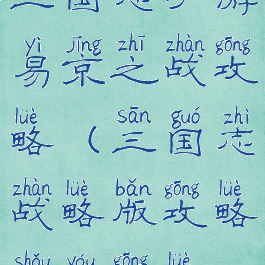 三国志手游
yì jīng zhī zhàn gōng
易京之战攻
lüè sān guó zhì
略（三国志
zhàn lüè bǎn gōng lüè
战略版攻略
shǒu yóu gōng lüè